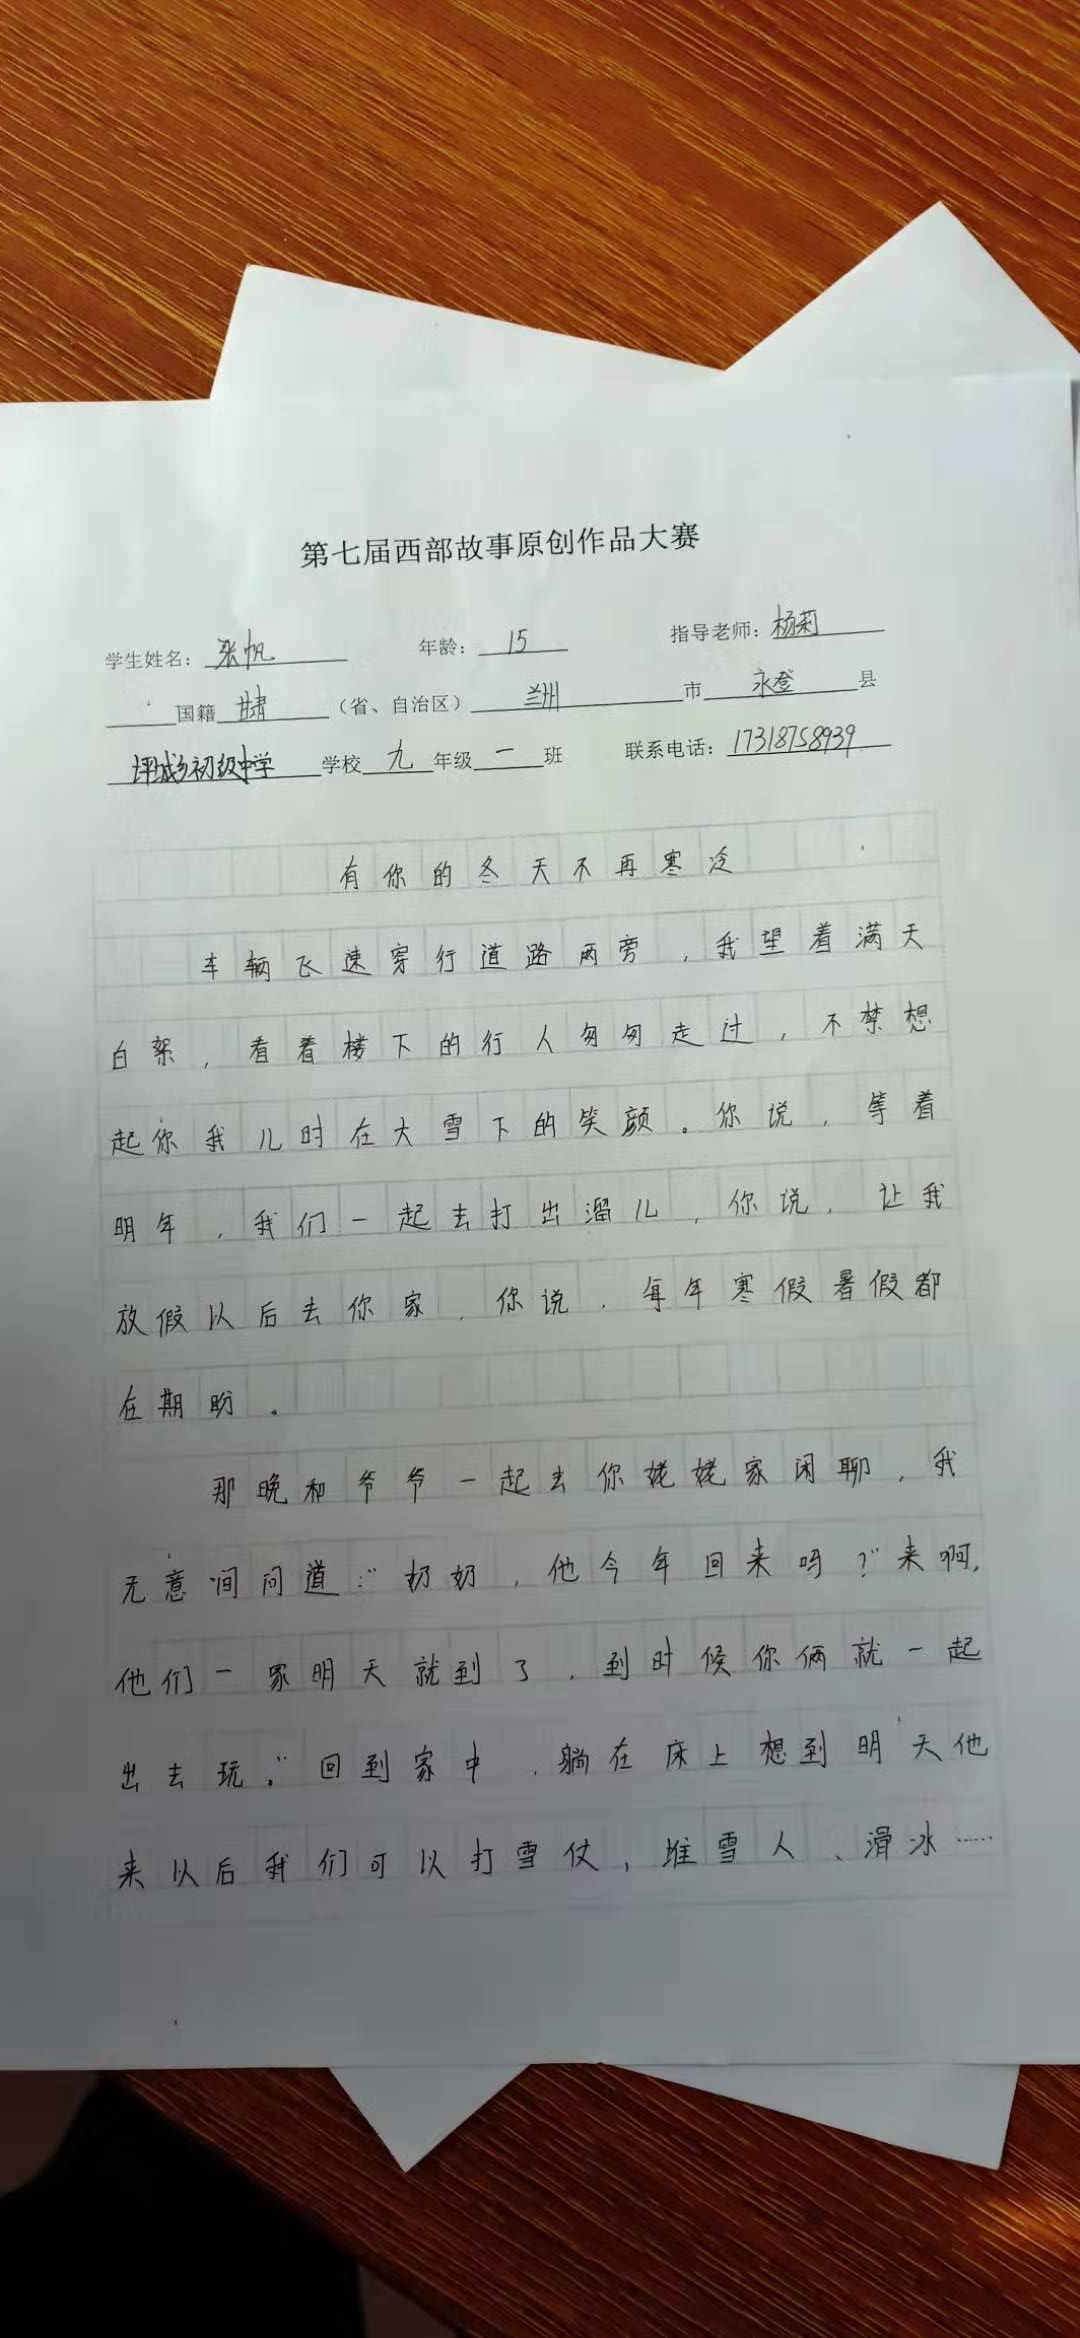 第七届西部故事原创作品大赛
学生姓名：张帆 年龄：15 指导老师：杨莉
国籍甘肃（省、自治区）兰州市永登县
坪城乡初级中学学校九年级一班 联系电话：17318758939
有你的冬天不再寒冷
车辆飞速穿行道路两旁，我望着满天
白絮，看着楼下的行人匆匆走过，不禁想
起你我儿时在大雪下的笑颜。你说，等着
明年，我们一起去打出溜儿，你说，让我
放假以后去你家，你说，每年寒假暑假都
在期盼。
那晚和爷爷一起去你姥姥家闲聊，我
无意间问道：“奶奶，他今年回来吗？”来啊，
他们一家明天就到了，到时候你俩就一起
出去玩。”回到家中，躺在床上想到明天他
来以后我们可以打雪仗，堆雪人、滑冰……